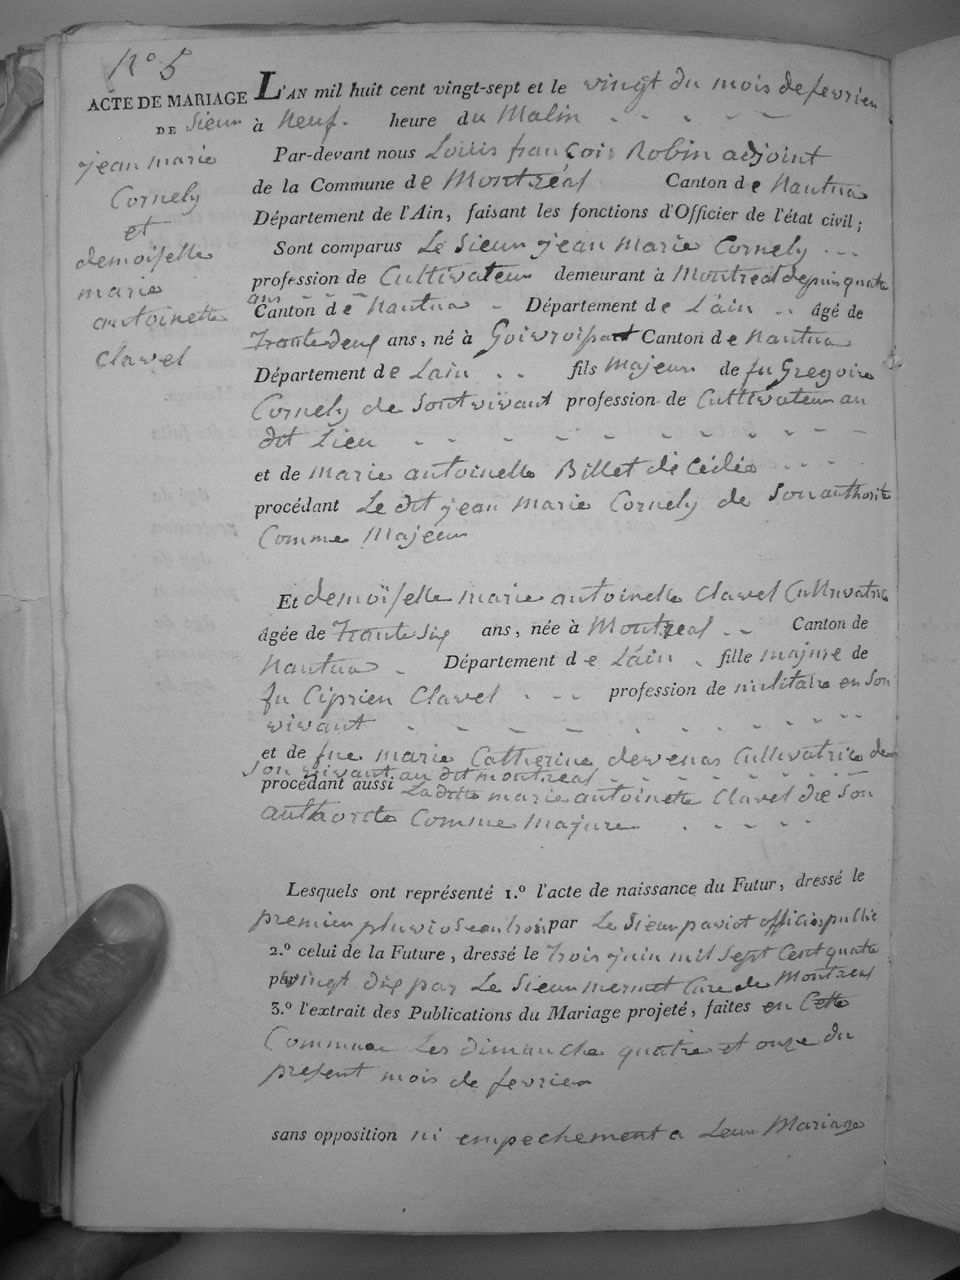 N° 5
ACTE DE MARIAGE
DE Sieur
jean marie
Cornely
et
demoiselle
marie
antoinette
Clavel
L'AN mil huit cent vingt-sept et le vingt du mois de fevrier
à neuf heure du Matin
Par-devant nous Louis françois Robin adjoint
de la Commune de Montréal Canton de Nantua
Département de l'Ain, faisant les fonctions d'Officier de l'état civil;
Sont comparus Le Sieur jean marie Cornely
profession de Cultivateur demeurant à Montreal depuis quatre
ans
Canton de Nantua Département de L'ain âgé de
Trente deux ans, né à Canton de Nantua
Département de Lain fils majeur de fu Gregoire
Cornely de Sont vivant profession de Cultivateur au
dit Lieu
et de marie antoinette Billet
procédant Le dit jean marie Cornely de Son authorite
Comme Majeur
Et demoiselle marie antoinette Clavel Cultivatrice
âgée de Trente Six ans, née à Montreal Canton de
Nantua Département de Lain fille majure de
fu Ciprien Clavel profession de militaire en Son
vivant
et de fue marie Catherine devenas Cultivatrice de
Son vivant au dit montreal
procédant aussi La ditte marie antoinette Clavel de Son
authorite Comme majure
Lesquels ont représenté 1.° l'acte de naissance du Futur, dressé le
premier pluviose an trois par Le Sieur paviot officier public
2.° celui de la Future, dressé le Trois juin mil Sept Cent quatre
vingt dix par Le Sieur mermet Cure de Montreal
3.° l'extrait des Publications du Mariage projeté, faites en Cette
Commune Les dimanche quatre et onze du
present mois de fevrier
sans opposition ni empechement a Leur Mariage